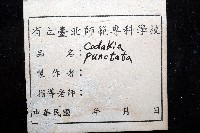 省立臺北師範專科學校
品名: Codakia punctata
製作者:
指導老師:
中華民國 年 月 日